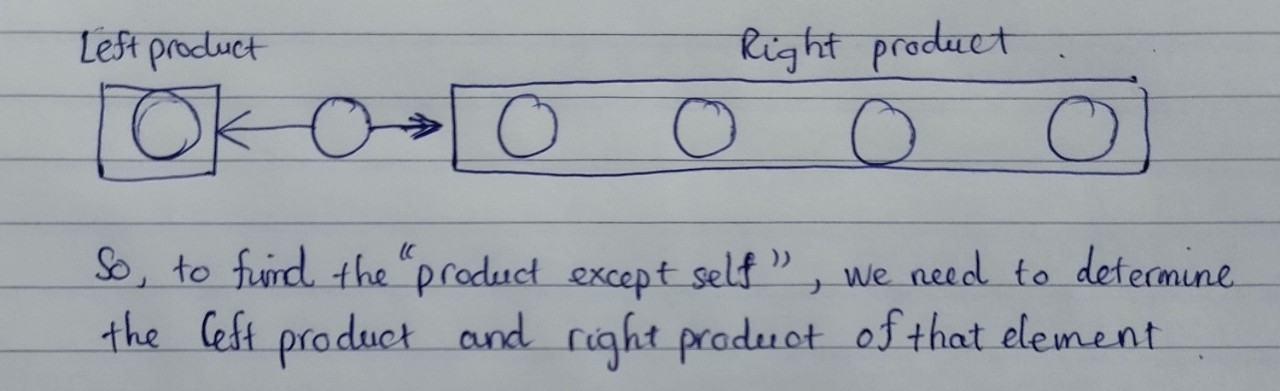 Left product
Right product .
So, to find the "product except self", we need to determine
the left product and right product of that element.